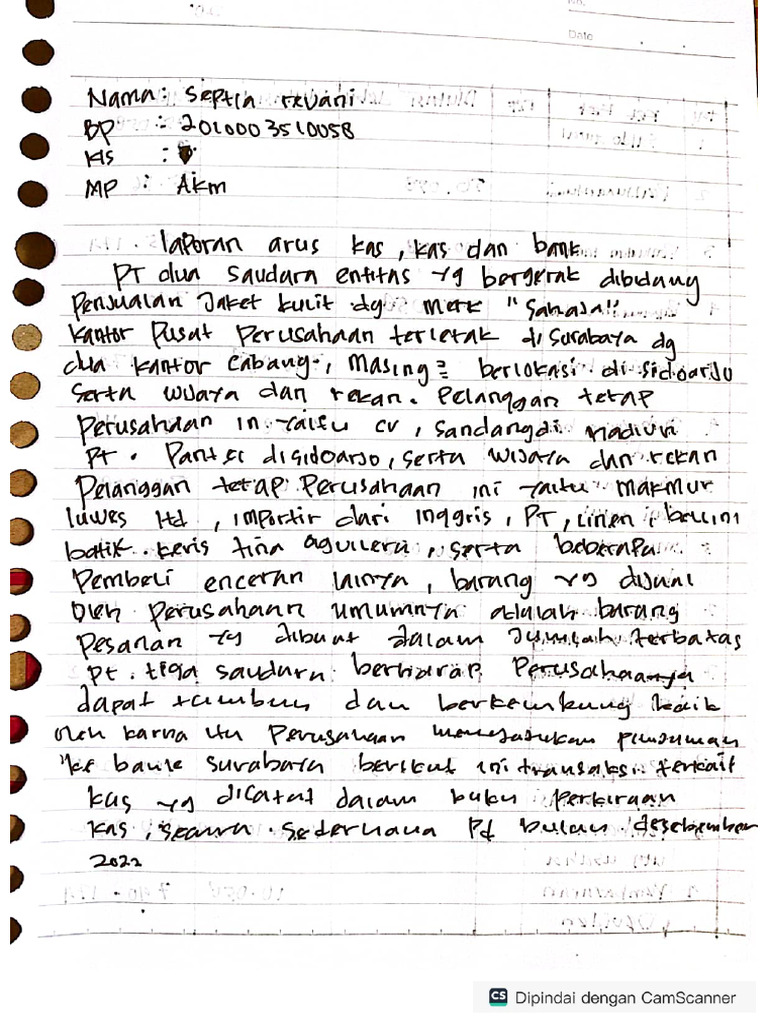 No.
Date
Nama : Septia revani
BP : 2010003510058
Kls :
MP : Akm
laporan arus kas, kas dan bank
PT dua saudara entitas yg bergerak dibidang
penjualan Jaket kulit dg merk "Sahasa"
kantor pusat perusahaan terletak di surabaya dg
dua kantor cabang, masing2 berlokasi di sidoarjo
serta wijaya dan rekan. pelanggan tetap
perusahaan in yaitu cv, sandang di madiun
pt. Panter disidoarjo, serta wijaya dan rekan
pelanggan tetap perusahaan ini yaitu makmur
luwes ltd, importir dari inggris, PT, linen, bellini
batik. keris tina aguilera, serta beberapa
pembeli enceran lainya, barang yg dijual
oleh perusahaan umumnya adalah barang
pesanan yg dibuat dalam jumlah terbatas
pt. tiga saudara berharap perusahaanya
dapat tumbuh dan berkembang baik
oleh karna itu perusahaan mengajukan pinjaman
ke bank surabaya berikut ini transaksi terkait
kas yg dicatat dalam buku perkiraan
kas, secara sederhana Pd bulan desebember
2022
CS Dipindai dengan CamScanner